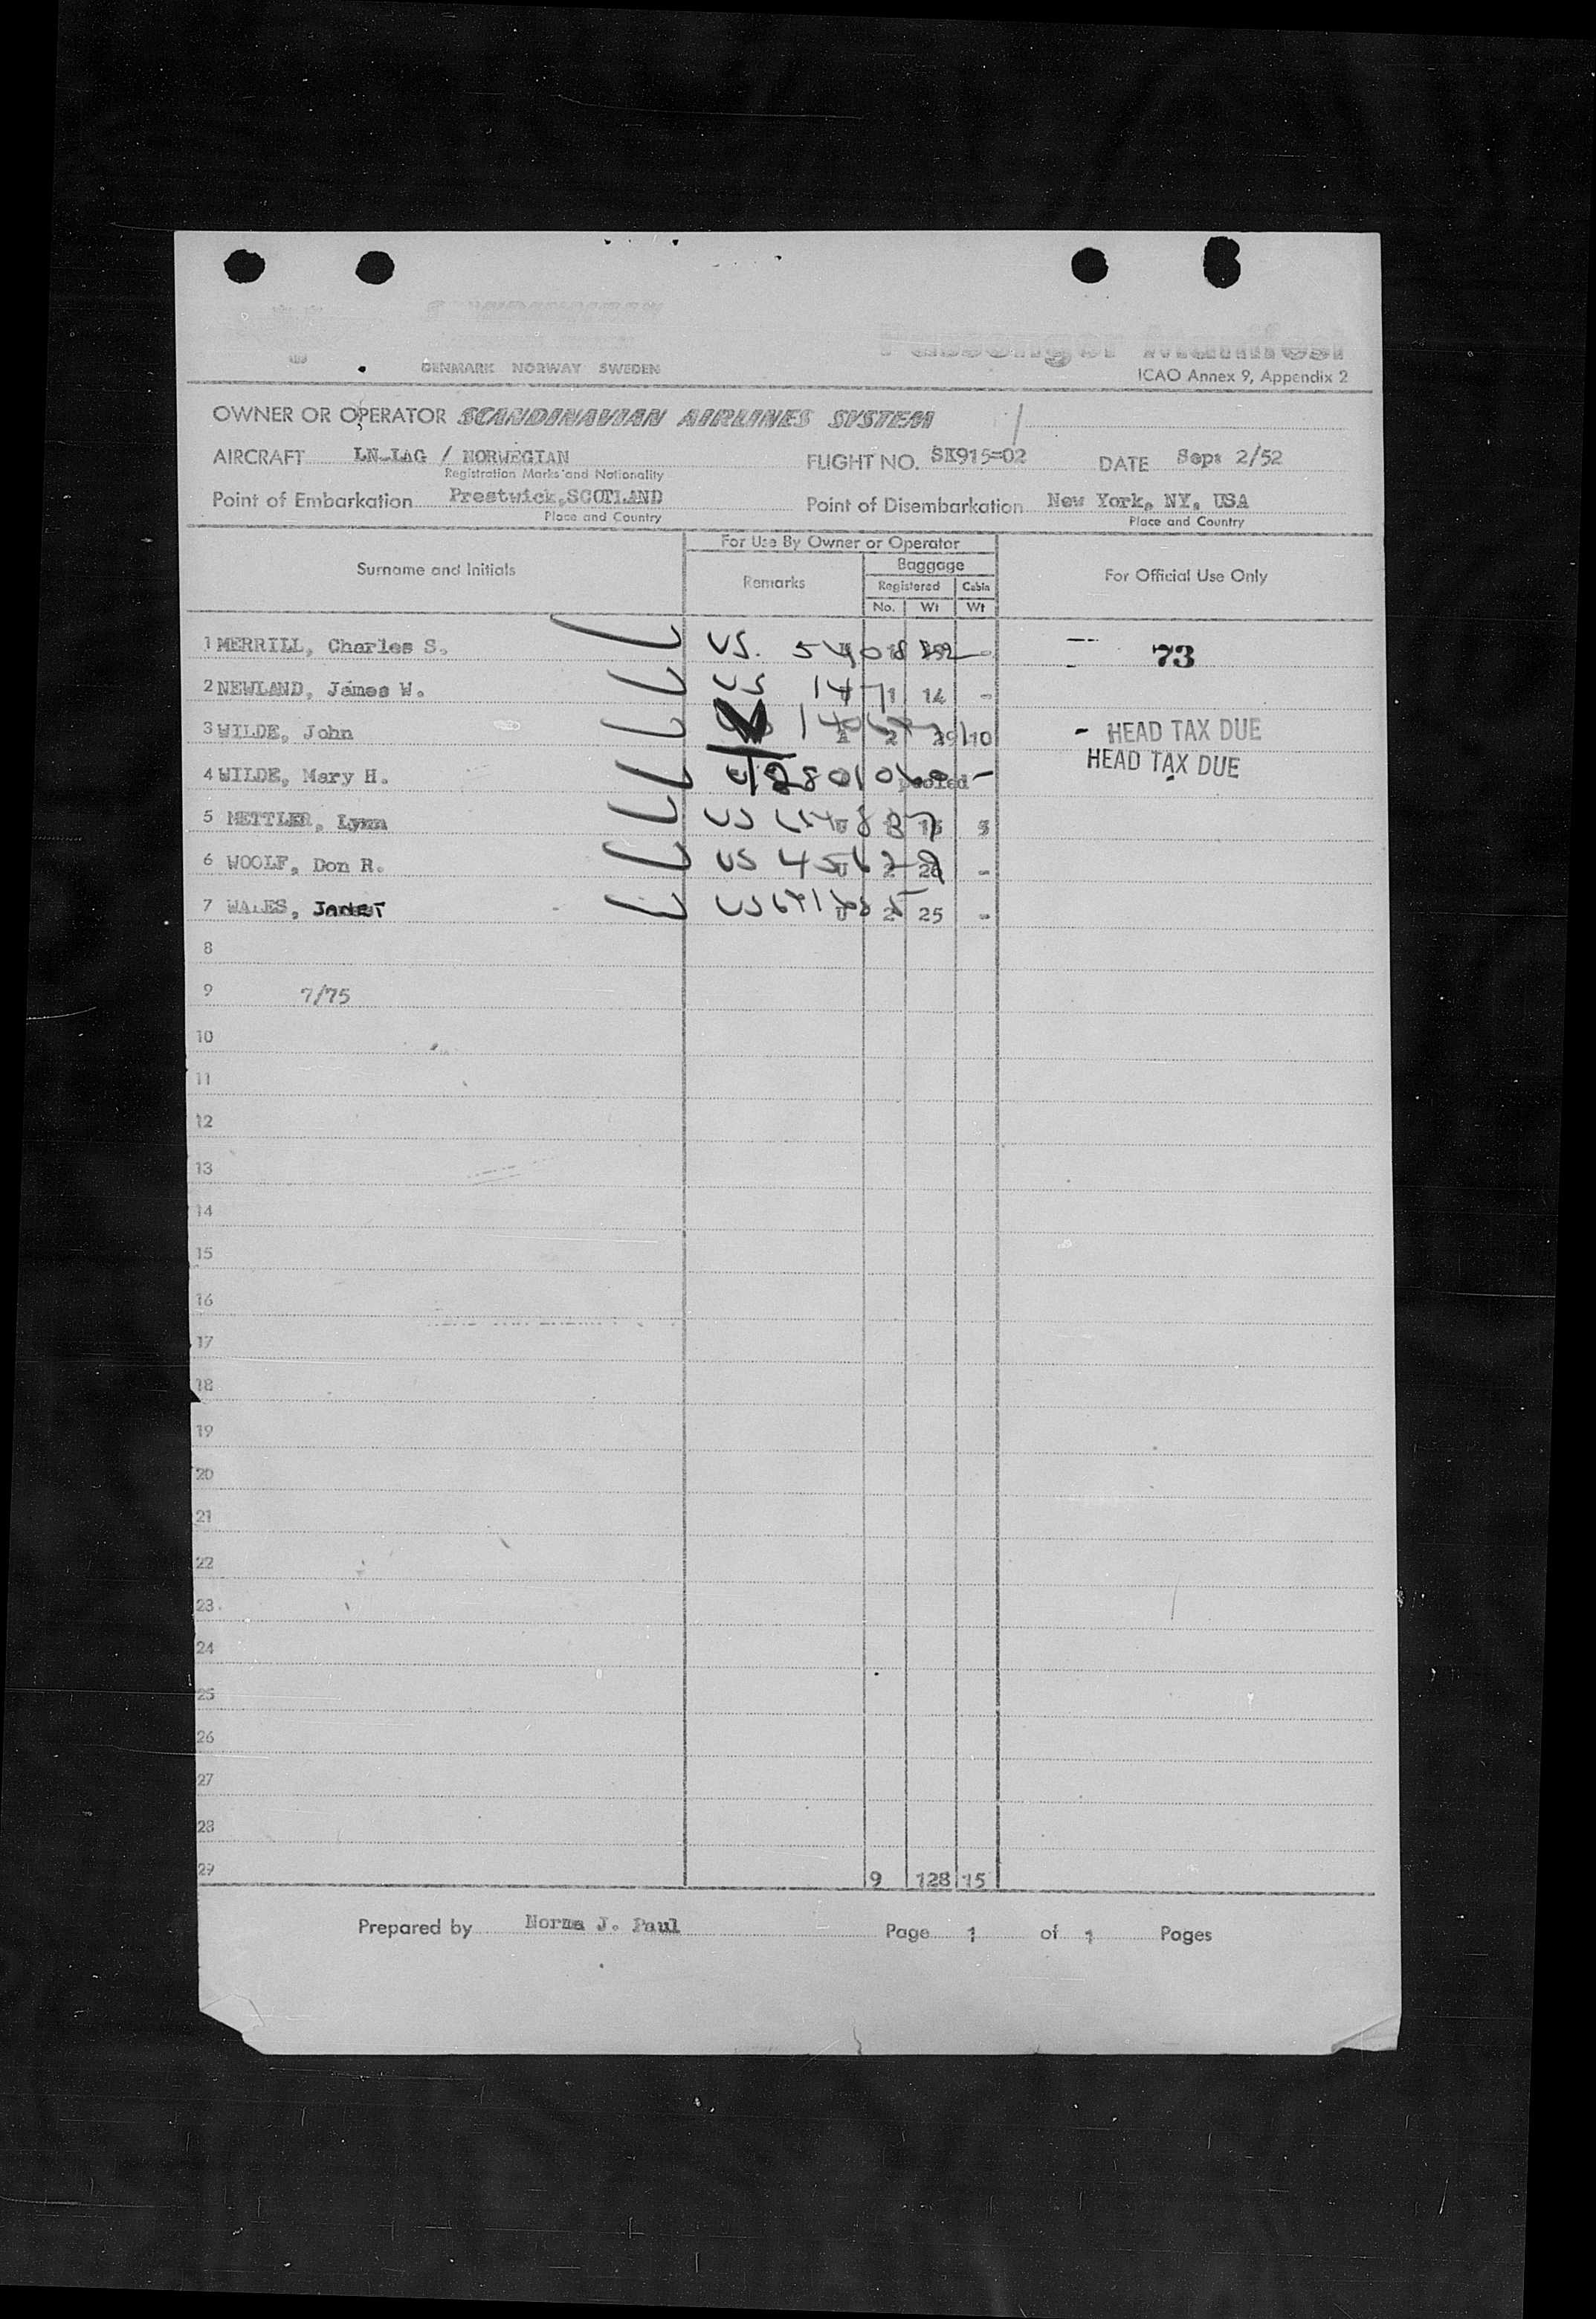 Passenger Manifest
DENMARK NORWAY SWEDEN
ICAO Annex 9, Appendix 2
OWNER OR OPERATOR SCANDINAVIAN AIRLINES SYSTEM
AIRCRAFT LN-LAG / NORWEGIAN FLIGHT NO. SK915=02 DATE Sept 2/52
Registration Marks and Nationality
Point of Embarkation Prestwick, SCOTLAND Point of Disembarkation New York, NY, USA
Place and Country Place and Country
For Use By Owner or Operator
Surname and Initials Remarks Baggage For Official Use Only
Registered Cabin
No. Wt Wt
1 MERRILL, Charles S. US. - 73
2 NEWLAND, James W. US 1 14 -
3 WILDE, John 2 10 - HEAD TAX DUE
4 WILDE, Mary H. pooled - HEAD TAX DUE
5 METTLER, Lynn US 5
6 WOOLF, Don R. US 2 -
7 WALES, Janet US 2 25 -
8
9 7/75
10
11
12
13
14
15
16
17
18
19
20
21
22
23
24
25
26
27
28
29 9 128 15
Prepared by Norma J. Paul Page 1 of 1 Pages